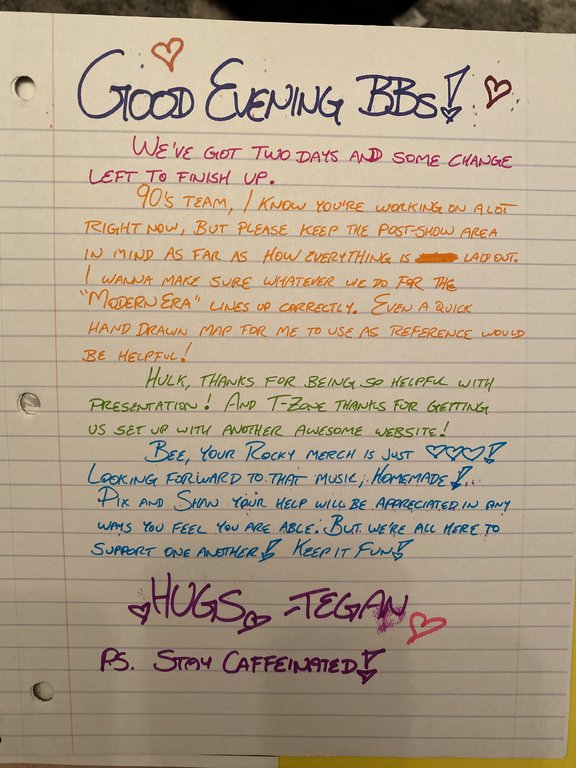 Good Evening BBs!
We've got two days and some change
left to finish up.
90's team, I know you're working on a lot
right now, but please keep the post-show area
in mind as far as how everything is laid out.
I wanna make sure whatever we do for the
"Modern Era" lines up correctly. Even a quick
hand drawn map for me to use as reference would
be helpful!
Hulk, thanks for being so helpful with
presentation! And T-Zone thanks for getting
us set up with another awesome website!
Bee, your Rocky merch is just ♡♡♡!
Looking forward to that music, Homemade!
Pix and Shan your help will be appreciated in any
ways you feel you are able. But we're all here to
support one another! Keep it fun!
Hugs -Tegan
PS. Stay Caffeinated!